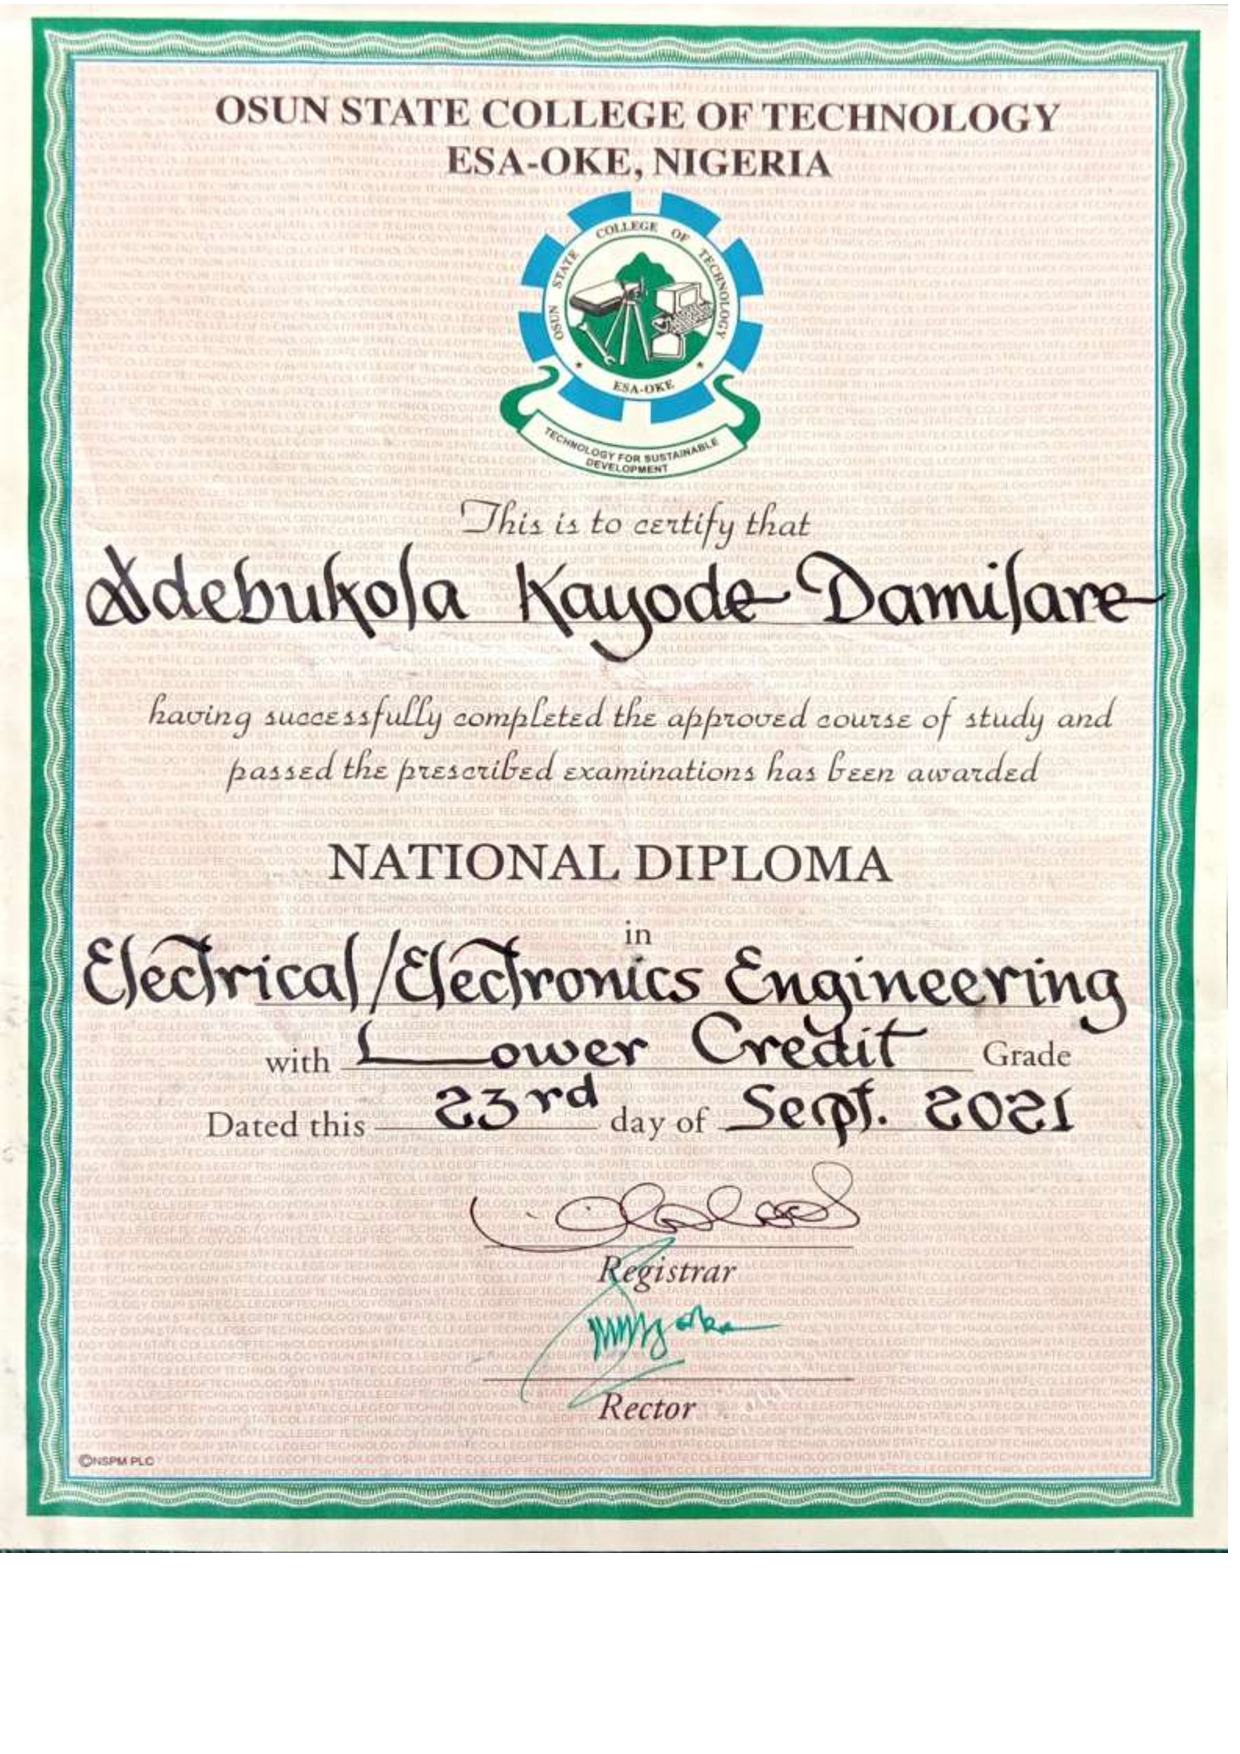 OSUN STATE COLLEGE OF TECHNOLOGY
ESA-OKE, NIGERIA
OSUN STATE COLLEGE OF TECHNOLOGY
ESA-OKE
TECHNOLOGY FOR SUSTAINABLE
DEVELOPMENT
This is to certify that
Adebukola Kayode Damilare
having successfully completed the approved course of study and
passed the prescribed examinations has been awarded
NATIONAL DIPLOMA
in
Electrical/Electronics Engineering
with Lower Credit Grade
Dated this 23rd day of Sept. 2021
Registrar
Rector
©NSPM PLC